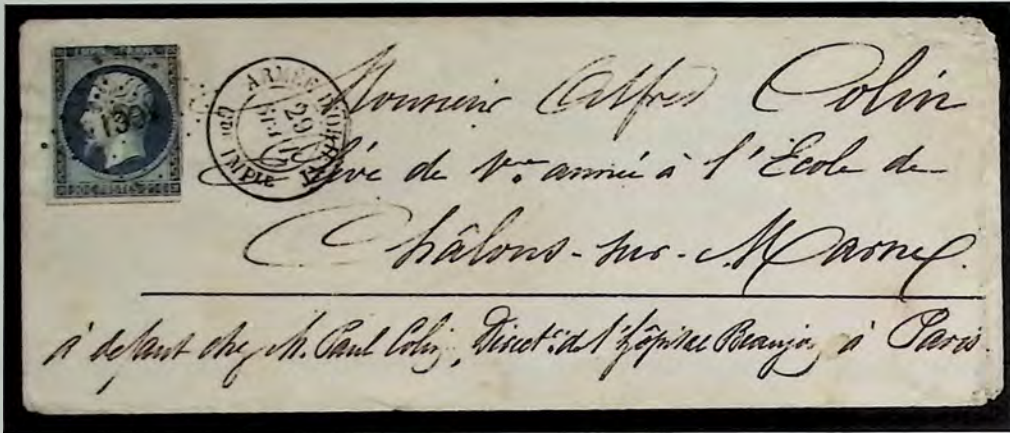 139
ARMÉE D'ORIENT
29
Gde IMPle
Monsieur Alfred Colin
Élève de 1ère année à l'École de
Châlons-sur-Marne.
à defaut chez M. Paul Colin, Directr de l'hôpital Beaujon à Paris.